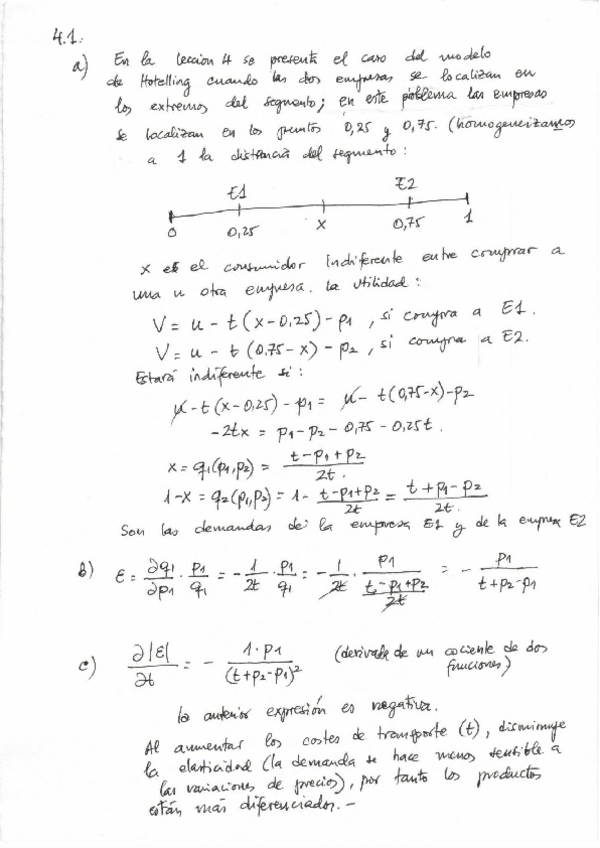 4.1.
a) En la leccion 4 se presenta el caso del modelo
de Hotelling cuando las dos empresas se localizan en
los extremos del segmento; en este problema las empresas
se localizan en los puntos 0,25 y 0,75. (homogeneizamos
a 1 la distancia del segmento:
E1 E2
0 0,25 x 0,75 1
x es el consumidor indiferente entre comprar a
una u otra empresa. la utilidad:
V = u - t (x-0,25) - p1 , si compra a E1.
V = u - t (0,75-x) - p2 , si compra a E2.
Estará indiferente si:
u - t(x-0,25) - p1 = u - t(0,75-x) - p2
-2tx = p1 - p2 - 0,75 - 0,25t.
x = q1(p1,p2) = (t-p1+p2)/2t.
1-x = q2(p1,p2) = 1 - (t-p1+p2)/2t = (t+p1-p2)/2t.
Son las demandas de la empresa E1 y de la empresa E2
b) ε = ∂q1/∂p1 · p1/q1 = -1/2t · p1/q1 = -1/2t · p1/((t-p1+p2)/2t) = - p1/(t+p2-p1)
c) ∂|ε|/∂t = - 1·p1/(t+p2-p1)² (derivada de un cociente de dos
funciones)
la anterior expresión es negativa.
Al aumentar los costes de transporte (t), disminuye
la elasticidad (la demanda se hace menos sensible a
las variaciones de precios), por tanto los productos
están más diferenciados.-